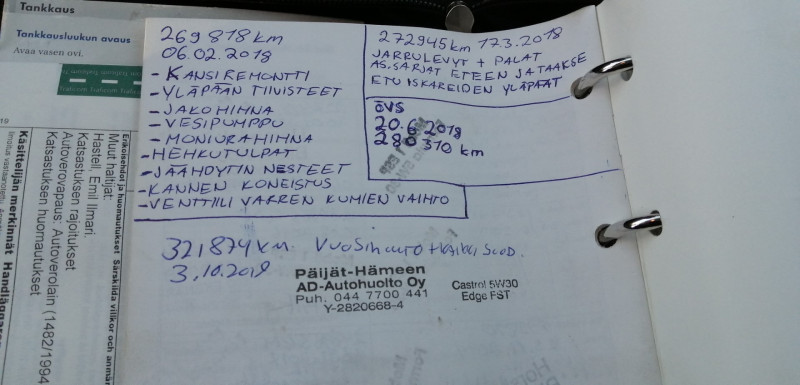 Tankkaus
Tankkausluukun avaus
Avaa vasen ovi.
269 818 km
06.02.2018
- KANSIREMONTTI
- YLÄPÄÄN TIIVISTEET
- JAKOHIHNA
- VESIPUMPPU
- MONIURAHIHNA
- HEHKUTULPAT
- JÄÄHDYTIN NESTEET
- KANNEN KONEISTUS
- VENTTIILI VARREN KUMIEN VAIHTO
272945 km 17.3.2018
JARRULEVYT + PALAT
AS.SARJAT ETEEN JA TAAKSE
ETUISKAREIDEN YLÄPÄÄT
ÖVS
20.6.2018
280 310 km
321874 km. Vuosihuolto +
3.10.2018
Päijät-Hämeen
AD-Autohuolto Oy
Puh. 044 7700 441
Y-2820668-4
Castrol 5W30
Edge FST
Erikoisehdot ja huomautukset Särskilda villkor och
Muut haltijat:
Hastell, Emil Ilmari.
Katsastuksen rajoitukset
Autoverovapaus: Autoverolain (1482/1994
Katsastuksen huomautukset
Käsittelijän merkinnät